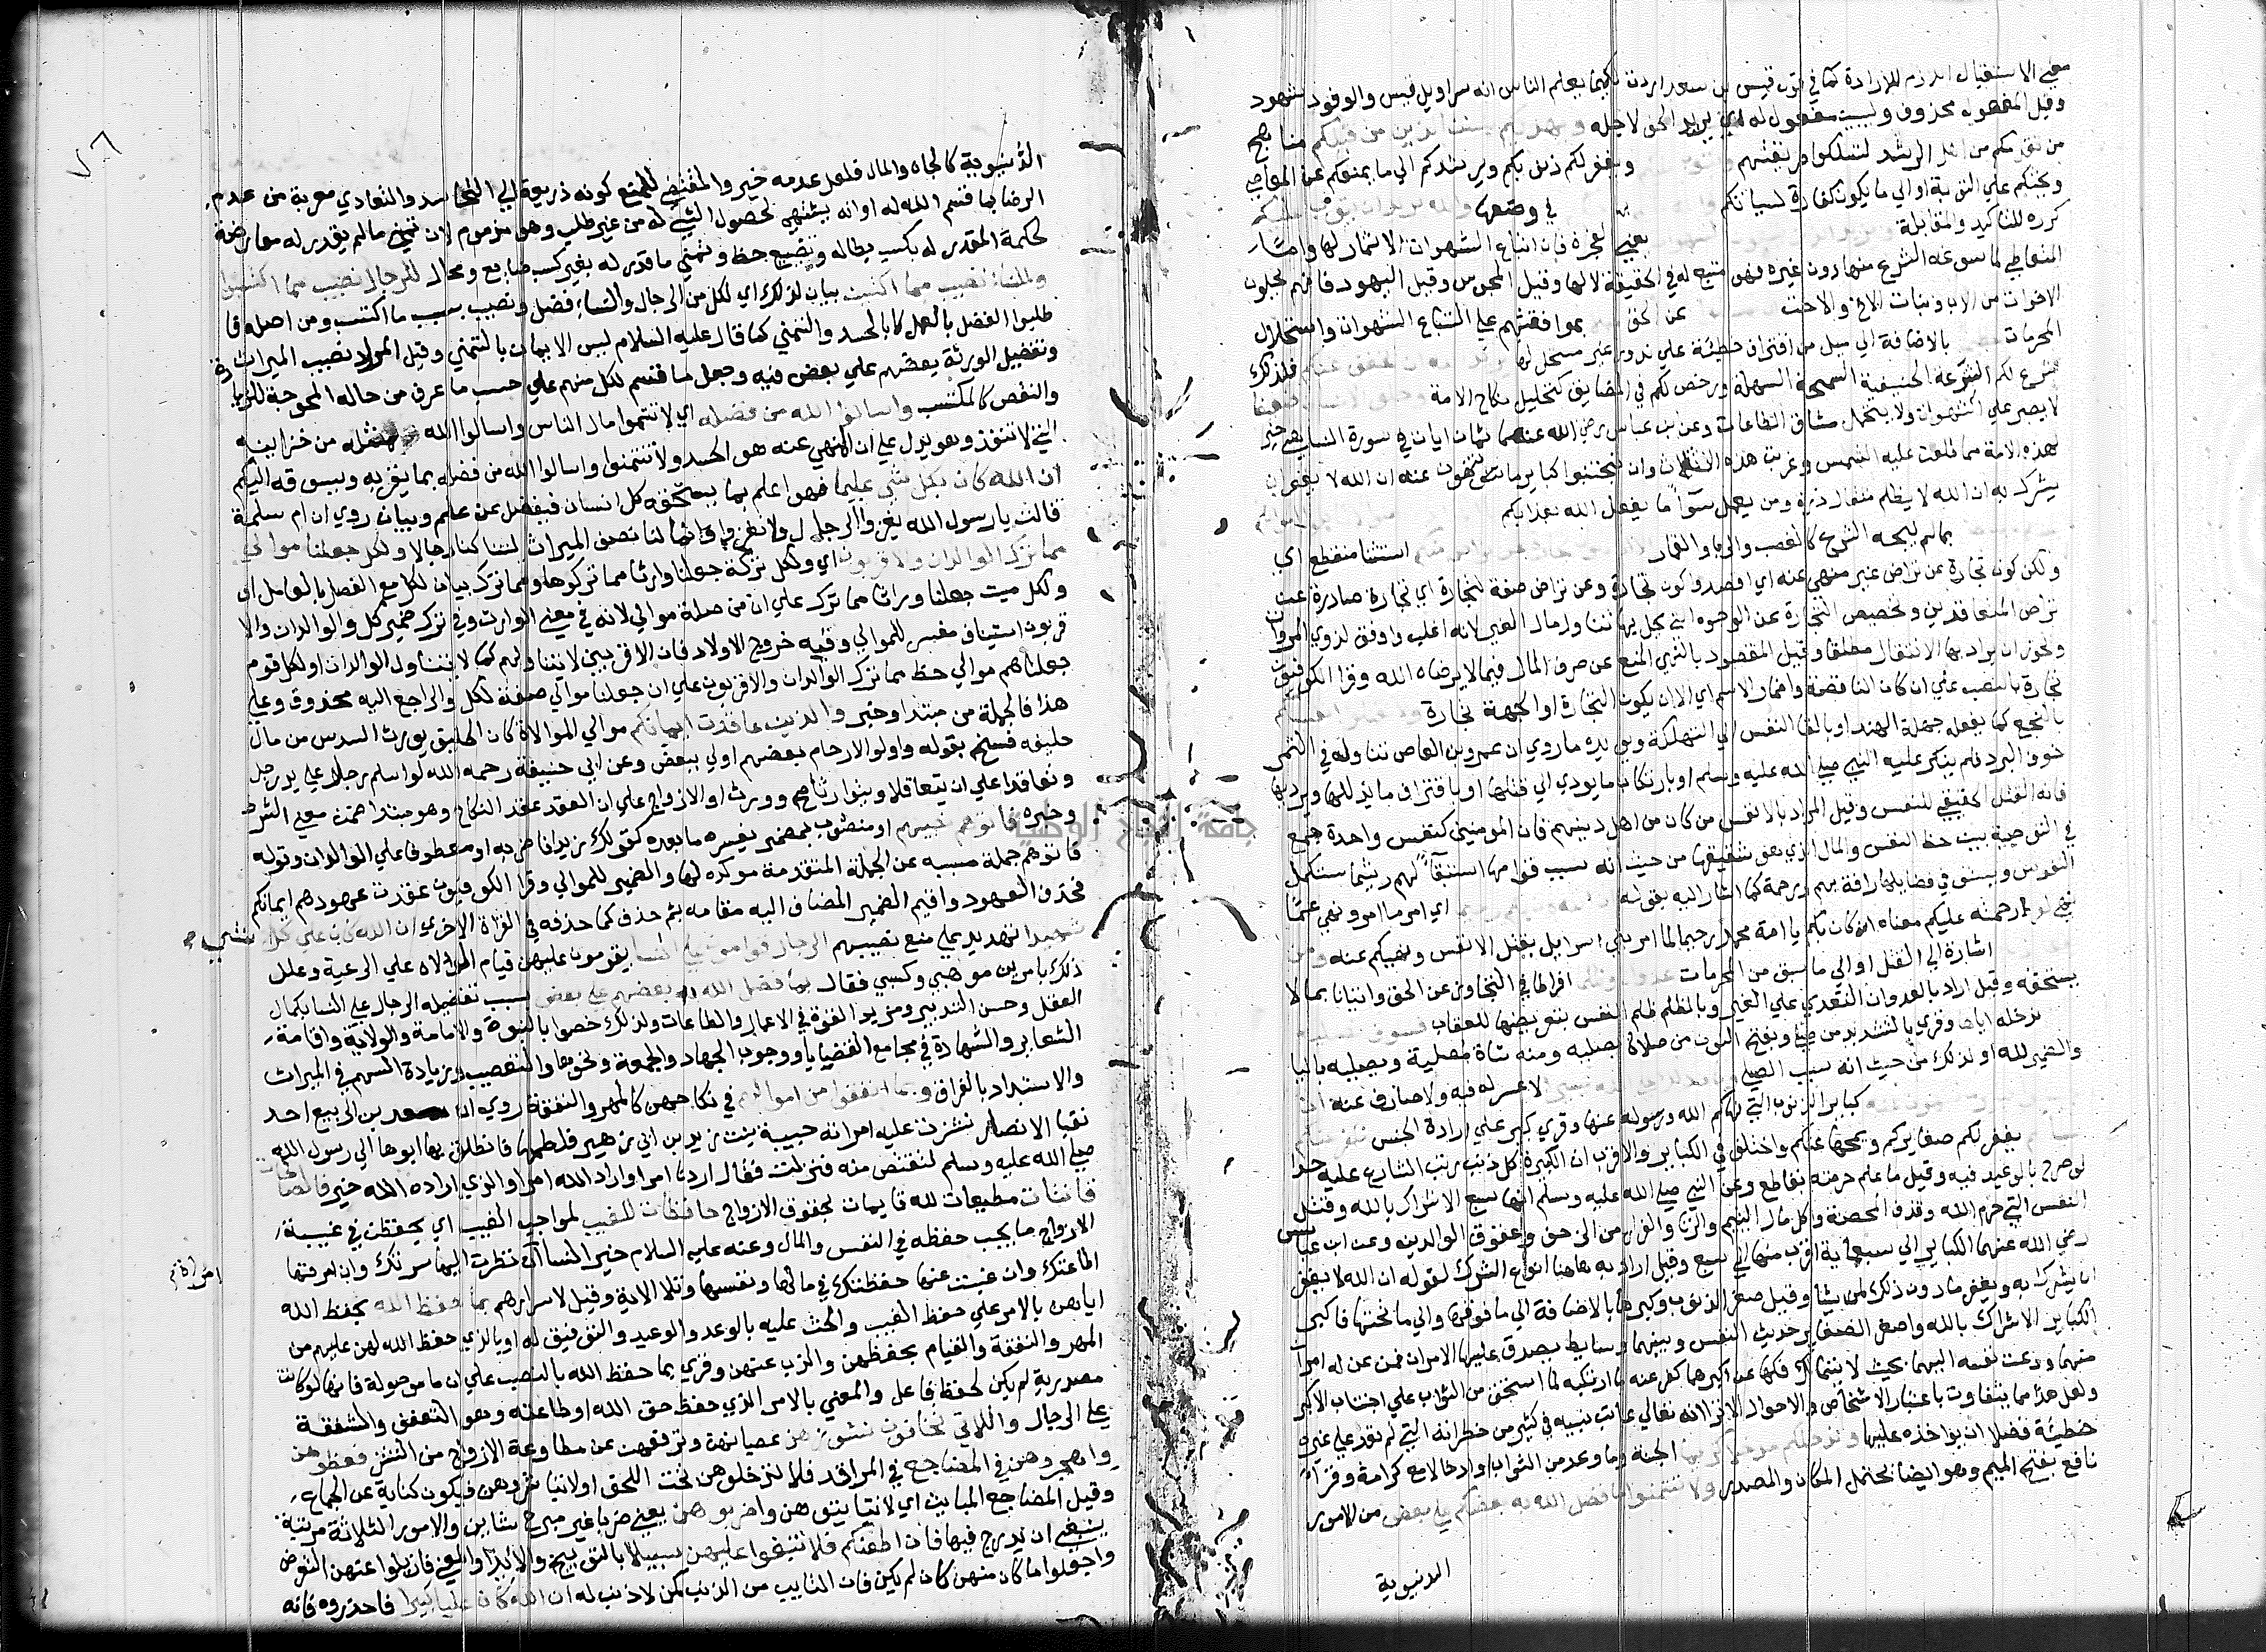 معنى الاستقبال اللازم للارادة كما في قول قيس بن سعد اردت لكيما يعلم الناس انه سراويل قيس والوفود شهود
وقيل المفعول محذوف وليبين مفعول له اي يريد الحق لاجله ويهديكم سنن الذين من قبلكم مناهج
من تقدمكم من اهل الرشد لتسلكوا طريقتهم ويغفر لكم ذنوبكم ويرشدكم الي ما يمنعكم عن المعاصي
ويحثكم علي التوبة او الي ما يكون كفارة لسياتكم في وضعها والله يريد ان يتوب عليكم
كرره للتاكيد والمقابلة يعني الفجرة فان اتباع الشهوات الائتمار لها واما
المتعاطي لما سوغه الشرع منها دون غيره فهو متبع له في الحقيقة لا لها وقيل المجوس وقيل اليهود فانهم يحلون
الاخوات من الاب وبنات الاخ والاخت عن الحق بموافقتهم علي اتباع الشهوات واستحلال
المحرمات بالاضافة الي ميل من اقترف خطيئة علي ندور غير مستحل لها فلذلك
شرع لكم الشرعة الحنيفية السمحة السهلة ورخص لكم في المضايق كتحليل نكاح الامة
لا يصبر علي الشهوات ولا يتحمل مشاق الطاعات وعن ابن عباس رضي الله عنهما ثمان ايات في سورة النسا هي خير
لهذه الامة مما طلعت عليه الشمس وغربت هذه الثلاث وان تجتنبوا كباير ما تنهون عنه ان الله لا يغفر ان
يشرك به ان الله لا يظلم مثقال ذرة ومن يعمل سوأ ما يفعل الله بعذابكم
بما لم يبحه الشرع كالغصب والربا والقمار استثنا منقطع اي
ولكن كون تجارة عن تراض غير منهي عنه اي اقصدوا كون تجارة وعن تراض صفة لتجارة اي تجارة صادرة عن
تراض المتعاقدين وتخصيص التجارة عن الوجوه التي يحل بها تناول مال الغير لانه اغلب واوفق لذوي المروات
ويجوز ان يراد بها الانتقال مطلقا وقيل المقصود بالنهي المنع عن صرف المال فيما لا يرضاه الله وقرا الكوفيون
تجارة بالنصب علي ان كان الناقصة واضمار الاسم اي الا ان يكون التجارة او الجهة تجارة
بالبخع كما يفعله جهلة الهند او بالقا النفس الي التهلكة ويويده ما روي ان عمرو بن العاص تناوله في التيمم
خوف البرد فلم ينكر عليه النبي صلي الله عليه وسلم او بارتكاب ما يودي الي قتلها او باقتراف ما يذللها ويرديها
فانه القتل الحقيقي للنفس وقيل المراد بالانفس من كان من اهل دينهم فان المومنين كنفس واحدة جمع
في التوصية بين حظ النفس والمال الذي هو شقيقها من حيث انه سبب قوامها استبقآ لهم ريثما تستكمل
النفوس ويستوفي فضايلها رافة بهم ورحمة كما اشار اليه بقوله اي امر ما امر ونهي عما
نهي لفرط رحمته عليكم معناه انه كان بكم يا امة محمد رحيما لما امر بني اسرايل بقتل الانفس ونهيكم عنه
اشارة الي القتل او الي ما سبق من المحرمات افراطا في التجاوز عن الحق واتيانا بما لا
يستحقه وقيل اراد بالعدوان التعدي علي الغير وبالظلم ظلم النفس بتعريضها للعقاب
ندخله اياها وقري بالتشديد من صلي وبفتح النون من صلاه يصليه ومنه شاة مصلية ويصليه باليا
والضمير لله او لذلك من حيث انه سبب الصلي لا عسر له فيه ولا صارف عنه
كباير الذنوب التي نهاكم الله ورسوله عنها وقري كبير علي ارادة الجنس
يغفر لكم صغايركم ويمحها عنكم واختلف في الكباير والاقرب ان الكبيرة كل ذنب رتب الشارع عليه حدا
او صرح بالوعيد فيه وقيل ما علم حرمته بقاطع وعن النبي صلي الله عليه وسلم انها سبع الاشراك بالله وقتل
النفس التي حرم الله وقذف المحصنة واكل مال اليتيم والزنا والفرار من الزحف وعقوق الوالدين وعن ابن عباس
رضي الله عنهما الكباير الي سبعماية اقرب منها الي سبع وقيل اراد به هاهنا انواع الشرك لقوله ان الله لا يغفر
ان يشرك به ويغفر ما دون ذلك لمن يشأ وقيل صغر الذنوب وكبرها بالاضافة الي ما فوقها والي ما تحتها فاكبر
الكباير الاشراك بالله واصغر الصغاير حديث النفس وبينهما وسايط يصدق عليها الامران فمن عن له امران
منهما ودعت نفسه اليهما بحيث لا يتمالك فكفها عن اكبرهما كفر عنه ما ارتكبه لما استحق من الثواب علي اجتناب الاكبر
ولعل هذا مما يتفاوت باعتبار الاشخاص والاحوال الا ترا انه تعالي عاتب نبيه في كثير من خطراته التي لم تعد علي غيره
خطيئة فضلا ان يواخذه عليها وندخلكم مدخلا كريما الجنة وما وعد من الثواب او ادخالا مع كرامة وقرأ
نافع بفتح الميم وهو ايضا يحتمل المكان والمصدر ولا تتمنوا ما فضل الله به بعضكم علي بعض من الامور
الدنيوية
٧٦
الدنيوية كالجاه والمال فلعل عدمه خير والمقتضي للمنع كونه ذريعة الي التحاسد والتعادي معربة من عدم
الرضا بما قسم الله له او انه يشتهي لحصول الشي له من غير طلب وهو مذموم لان تمني ما لم يقدر له معارضة
لحكمة المقدر له بكسب بطاله وتضييع حظ وتمني ما قدر له بغير كسب ضايع ومحال للرجال نصيب مما اكتسبوا
وللنساء نصيب مما اكتسبن بيان لذلك اي لكل من الرجال والنساء فضل ونصيب بسبب ما اكتسب ومن اصله فا
طلبوا الفضل بالعمل لا بالحسد والتمني كما قال عليه السلام ليس الايمان بالتمني وقيل المراد نصيب الميراث
وتفضيل الورثة بعضهم علي بعض فيه وجعل ما قسم لكل منهم علي حسب ما عرف من حاله الموجبة للزيادة
والنقص كالمكتسب واسالوا الله من فضله اي لا تتمنوا مال الناس واسالوا الله مثله من خزاينه
التي لا تنفذ وهو يدل علي ان المنهي عنه هو الحسد ولا تتمنوا واسالوا الله من فضله بما يقربه ويسوقه اليكم
ان الله كان بكل شي عليما فهو اعلم بما يستحقه كل انسان فيفضل عن علم وبيان روي ان ام سلمة
قالت يا رسول الله يغزوا الرجال ولا نغزوا وانما لنا نصف الميراث ليتنا كنا رجالا ولكل جعلنا موالي
مما ترك الوالدان والاقربون اي ولكل تركة جعلنا وارثا مما تركوها ومما ترك بيان لكل مع الفصل بالعامل او
ولكل ميت جعلنا وراثا مما ترك علي ان من صلة موالي لانه في معني الوارث وفي ترك ضمير كل والوالدان والا
قربون استيناف مفسر للموالي وفيه خروج الاولاد فان الاقربين لا يتناولهم كما لا يتناول الوالدان او لكل قوم
جعلناهم موالي حظ مما ترك الوالدان والاقربون علي ان جعلنا موالي صفة لكل والراجع اليه محذوف وعلي
هذا فالجملة من مبتدا وخبر والذين عاقدت ايمانكم موالي الموالاة كان الحليف يورث السدس من مال
حليفه فنسخ بقوله واولوا الارحام بعضهم اولي ببعض وعن ابي حنيفة رحمه الله لو اسلم رجل علي يد رجل
وتعاقدا علي ان يتعاقلا ويتوارثا صح وورث او الازواج علي ان العقد عقد النكاح وهو مبتدا ضمن معني الشرط
وخبره فاتوهم نصيبهم او منصوب بمضمر يفسره ما بعده كقولك زيدا فاضربه او معطوف علي الوالدان وقوله
فاتوهم جملة مسببه عن الجملة المتقدمة موكده لها والضمير للموالي وقرا الكوفيون عقدت عهودهم ايمانكم
فحذف العهود واقيم الضمير المضاف اليه مقامه ثم حذف كما حذف في القراة الاخري ان الله كان علي كل شي
شهيدا تهديد علي منع نصيبهم الرجال قوامون علي النسا يقومون عليهن قيام الولاة علي الرعية وعلل
ذلك بامرين موهبي وكسبي فقال بما فضل الله بعضهم علي بعض بسبب تفضيله الرجال علي النسا بكمال
العقل وحسن التدبير ومزيد القوة في الاعمال والطاعات ولذلك خصوا بالنبوة والامامة والولاية واقامة
الشعاير والشهادة في مجامع القضايا ووجوب الجهاد والجمعة ونحوها والتعصيب وزيادة السهم في الميراث
والاستبداد بالفراق وبما انفقوا من اموالهم في نكاحهن كالمهر والنفقة روي ان سعد بن الربيع احد
نقبا الانصار نشزت عليه امراته حبيبة بنت زيد بن ابي زهير فلطمها فانطلق بها ابوها الي رسول الله
صلي الله عليه وسلم لنقتص منه فنزلت فقال اردنا امرا واراد الله امرا والذي اراده الله خير فالصالحات
قانتات مطيعات لله قايمات بحقوق الازواج حافظات للغيب لمواجب الغيب اي يحفظن في غيبة
الازواج ما يجب حفظه في النفس والمال وعنه عليه السلام خير النسا ان نظرت اليها سرتك وان امرتها
امراة
اطاعتك وان غيبت عنها حفظتك في مالها ونفسها وتلا الاية وقيل لاسرارهم بما حفظ الله بحفظ الله
اياهن بالامر علي حفظ الغيب والحث عليه بالوعد والوعيد والتوفيق له او بالذي حفظ الله لهن عليهم من
المهر والنفقة والقيام بحفظهن والذب عنهن وقري بما حفظ الله بالنصب علي ان ما موصولة فانها لو كانت
مصدرية لم يكن لحفظ فاعل والمعني بالامر الذي حفظ حق الله او طاعته وهو التعفف والشفقة
علي الرجال واللاتي تخافون نشوزهن عصيانهن وترفعهن عن مطاوعة الازواج من النشز فعظوهن
واهجروهن في المضاجع في المراقد فلا تدخلوهن تحت اللحف او لا تباشروهن فيكون كناية عن الجماع
وقيل المضاجع المبايت اي لا تبايتوهن واضربوهن يعني ضربا غير مبرح شاين والامور الثلاثة مرتبة
ينبغي ان يدرج فيها فان اطعنكم فلا تبغوا عليهن سبيلا بالتوبيخ والايذا والمعني فازيلوا عنهن التعرض
واجعلوا ما كان منهن كان لم يكن فان التايب من الذنب كمن لا ذنب له ان الله كان عليا كبيرا فاحذروه فانه